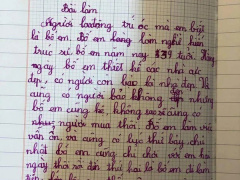 Bài làm
Người lao động trí óc mà em biết
là bố em. Bố em đang làm nghề kiến
trúc sư bố em năm nay 39 tuổi. Hàng
ngày bố em thiết kế các nhà rất
đẹp, có người còn bảo là nhà đẹp. Và
cũng có người bảo không đẹp nhưng
bố em cũng kệ, không vẽ cũng có
như người mua thôi. Bố em làm việc
vẫn ổn và cũng có lúc thứ bảy chủ
nhật bố em cũng chỉ chơi với em hai
ngày thôi rồi đến thứ hai là bố em đi làm